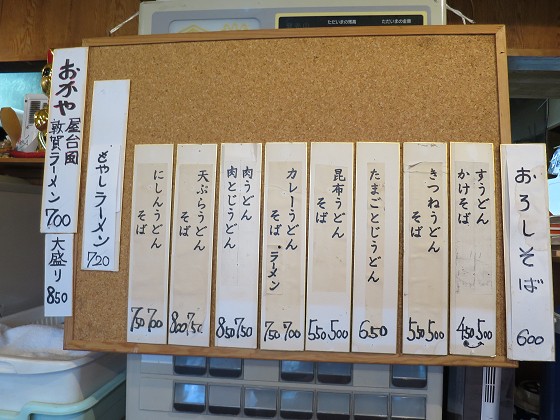 ただいまの時刻
おろしそば
600
すうどん
かけそば
450 500
きつねうどん
そば
550 500
たまごとじうどん
650
昆布うどん
そば
550 500
カレーうどん
そば・ラーメン
750 700
肉うどん
肉とじうどん
850 750
天ぷらうどん
そば
800 750
にしんうどん
そば
750 700
もやしラーメン
720
おかや
屋台風
敦賀ラーメン
700
大盛り
850